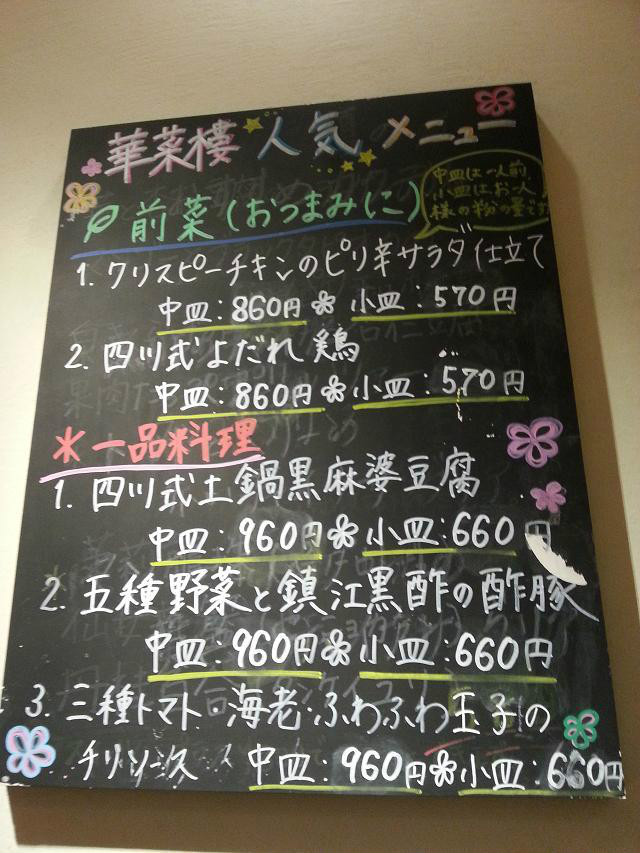 華菜樓 人気 メニュー
中皿は一人前
小皿はお一人
様の
の量です
前菜(おつまみに)
1. クリスピーチキンのピリ辛サラダ仕立て
中皿:860円 小皿:570円
2. 四川式よだれ鶏
中皿:860円 小皿:570円
*一品料理
1. 四川式土鍋黒麻婆豆腐
中皿:960円 小皿:660円
2. 五種野菜と鎮江黒酢の酢豚
中皿:960円 小皿:660円
3. 三種トマト・海老・ふわふわ玉子の
チリソース 中皿:960円 小皿:660円